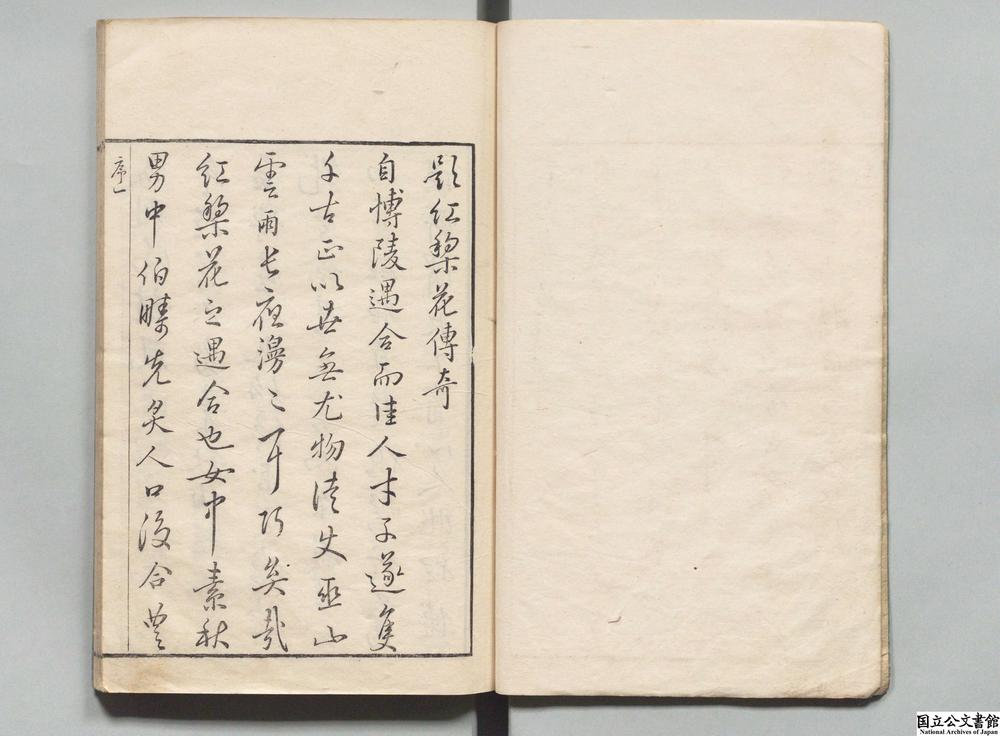 題紅梨花傳奇
自博陵遇合而佳人才子遂隻
千古正以世無尤物徒使巫山
雲雨長夜漫〻耳巧矣哉
紅梨花之遇合也女中素秋
男中伯疇先炙人口後合
序一
国立公文書館
National Archives of Japan